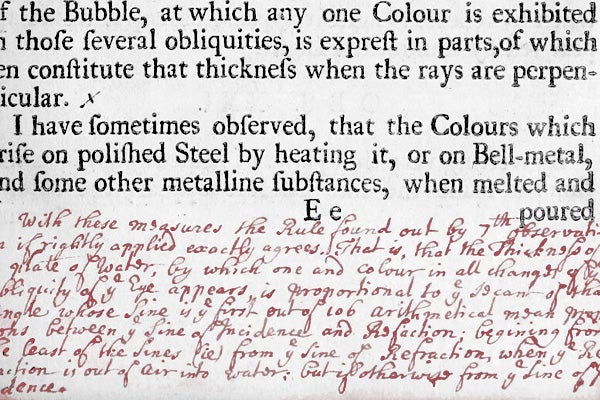 f the Bubble, at which any one Colour is exhibited
n thoſe ſeveral obliquities, is expreſt in parts, of which
en conſtitute that thickneſs when the rays are perpen-
icular. x
I have ſometimes obſerved, that the Colours which
riſe on poliſhed Steel by heating it, or on Bell-metal,
nd ſome other metalline ſubſtances, when melted and
E e poured
With these measures the Rule found out by 7th observati
is rightly applied exactly agrees. That is, that the Thickness of
plate of Water, by which one and colour in all changes of yͤ
bliquity of yͤ Eye appears, is proportional to yͤ secant of tha
ngle whose sine is yͤ first out of 106 arithmetical mean
between yͤ sine of Incidence and Refraction: begining from
e least of the sines from yͤ sine of Refraction, when yͤ Re
action is out of air into water: but if otherwise from yͤ sine of
dence.